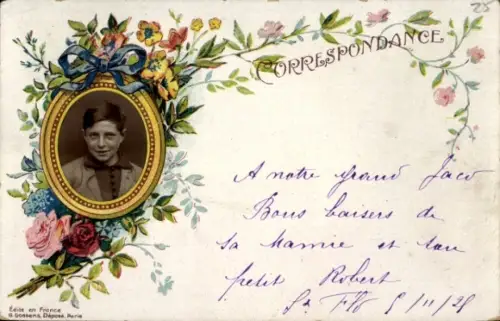 25
CORRESPONDANCE
A notre grand Jaco
Bons baisers de
sa Mamie et ton
petit Robert
5/11/25
Edite en France
Déposé, Paris